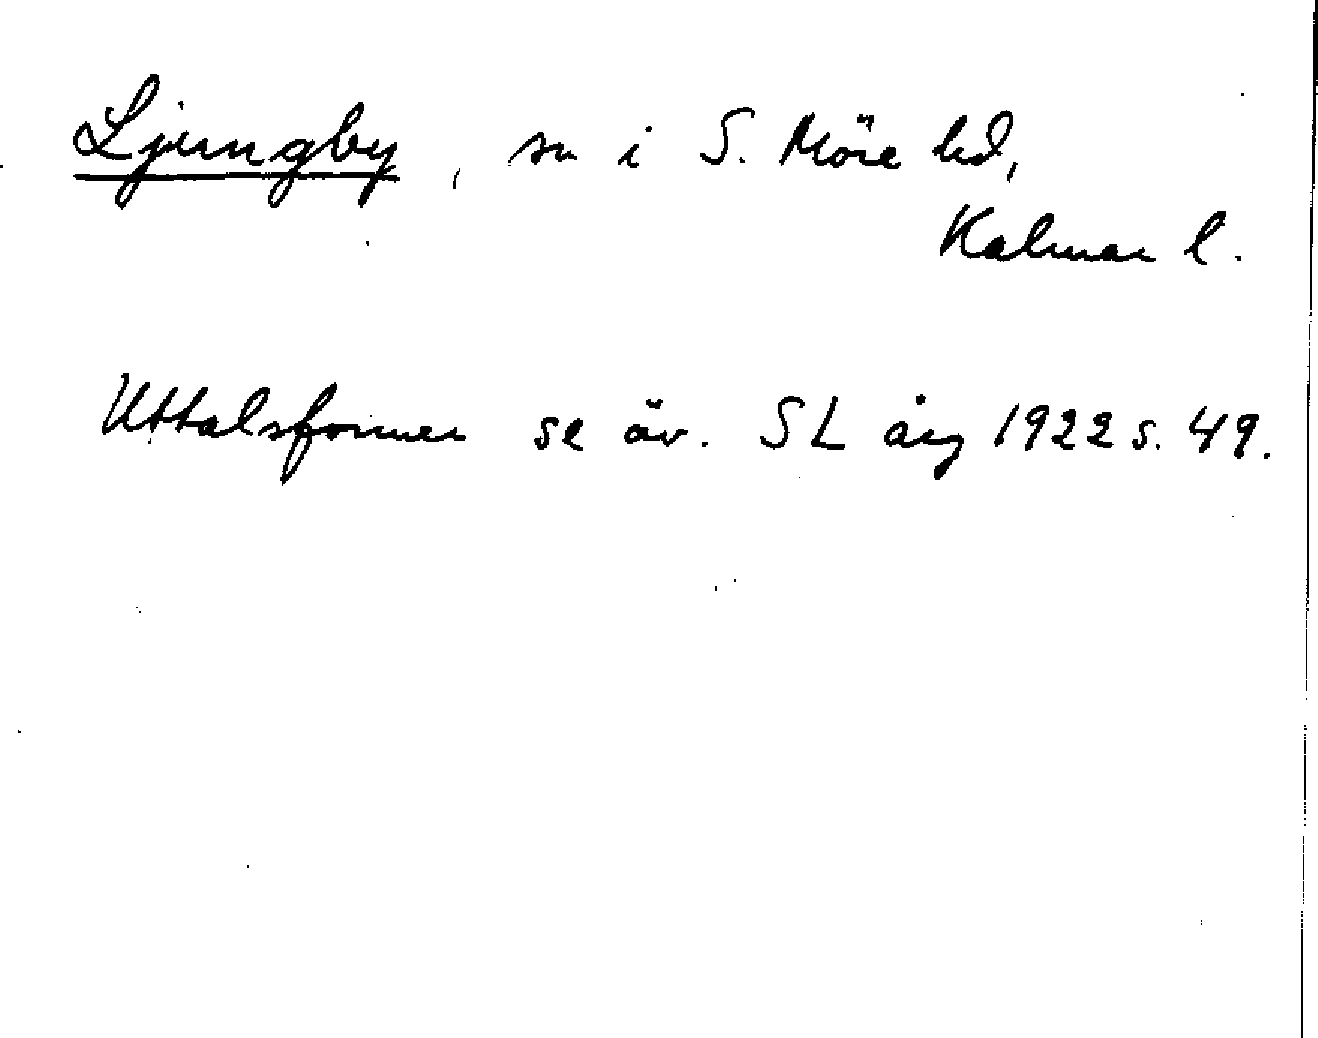 Ljungby, sn i S. Möre hd,
Kalmar l.
Uttalsformer se äv. SL årg 1922 s. 49.